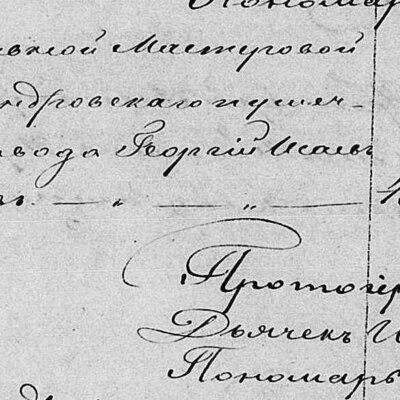 Пономар
ьской Мастеровой
ндровскаго пушеч-
авода Георгій Исаь
— „ — „ —
Протоіер
Дьячекъ И
Пономарь